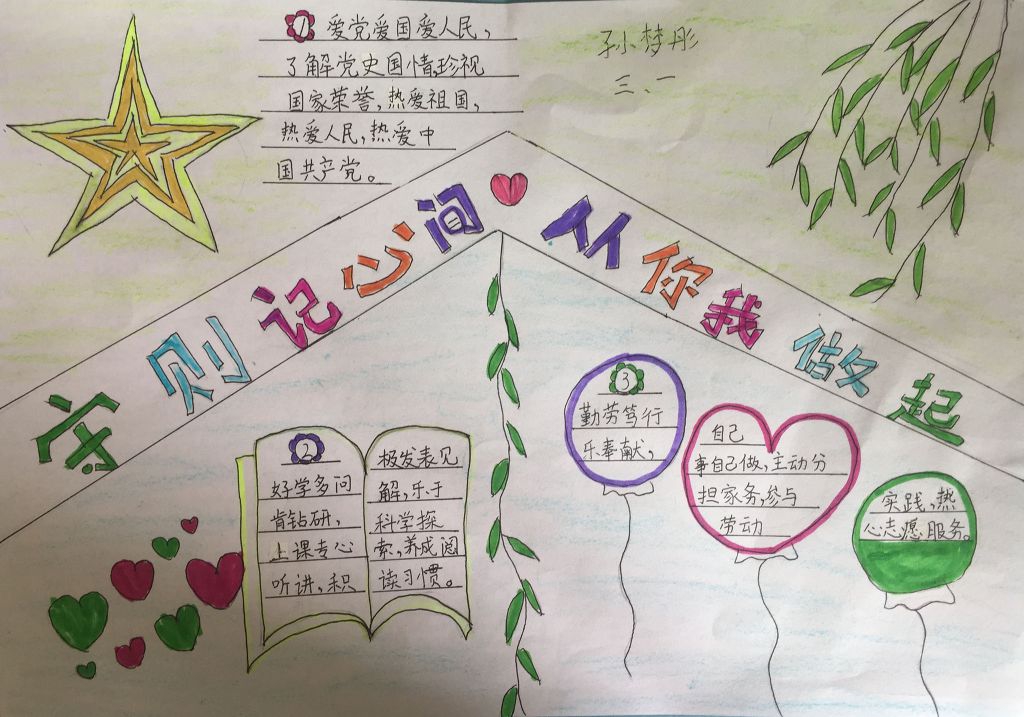 1 爱党爱国爱人民，
了解党史国情，珍视
国家荣誉，热爱祖国，
热爱人民，热爱中
国共产党。
孙梦彤
三、一
守则记心间 从你我做起
2
好学多问
肯钻研，
上课专心
听讲，积
极发表见
解，乐于
科学探
索，养成阅
读习惯。
3
勤劳笃行
乐奉献，
自己
事自己做，主动分
担家务，参与
劳动
实践，热
心志愿服务。